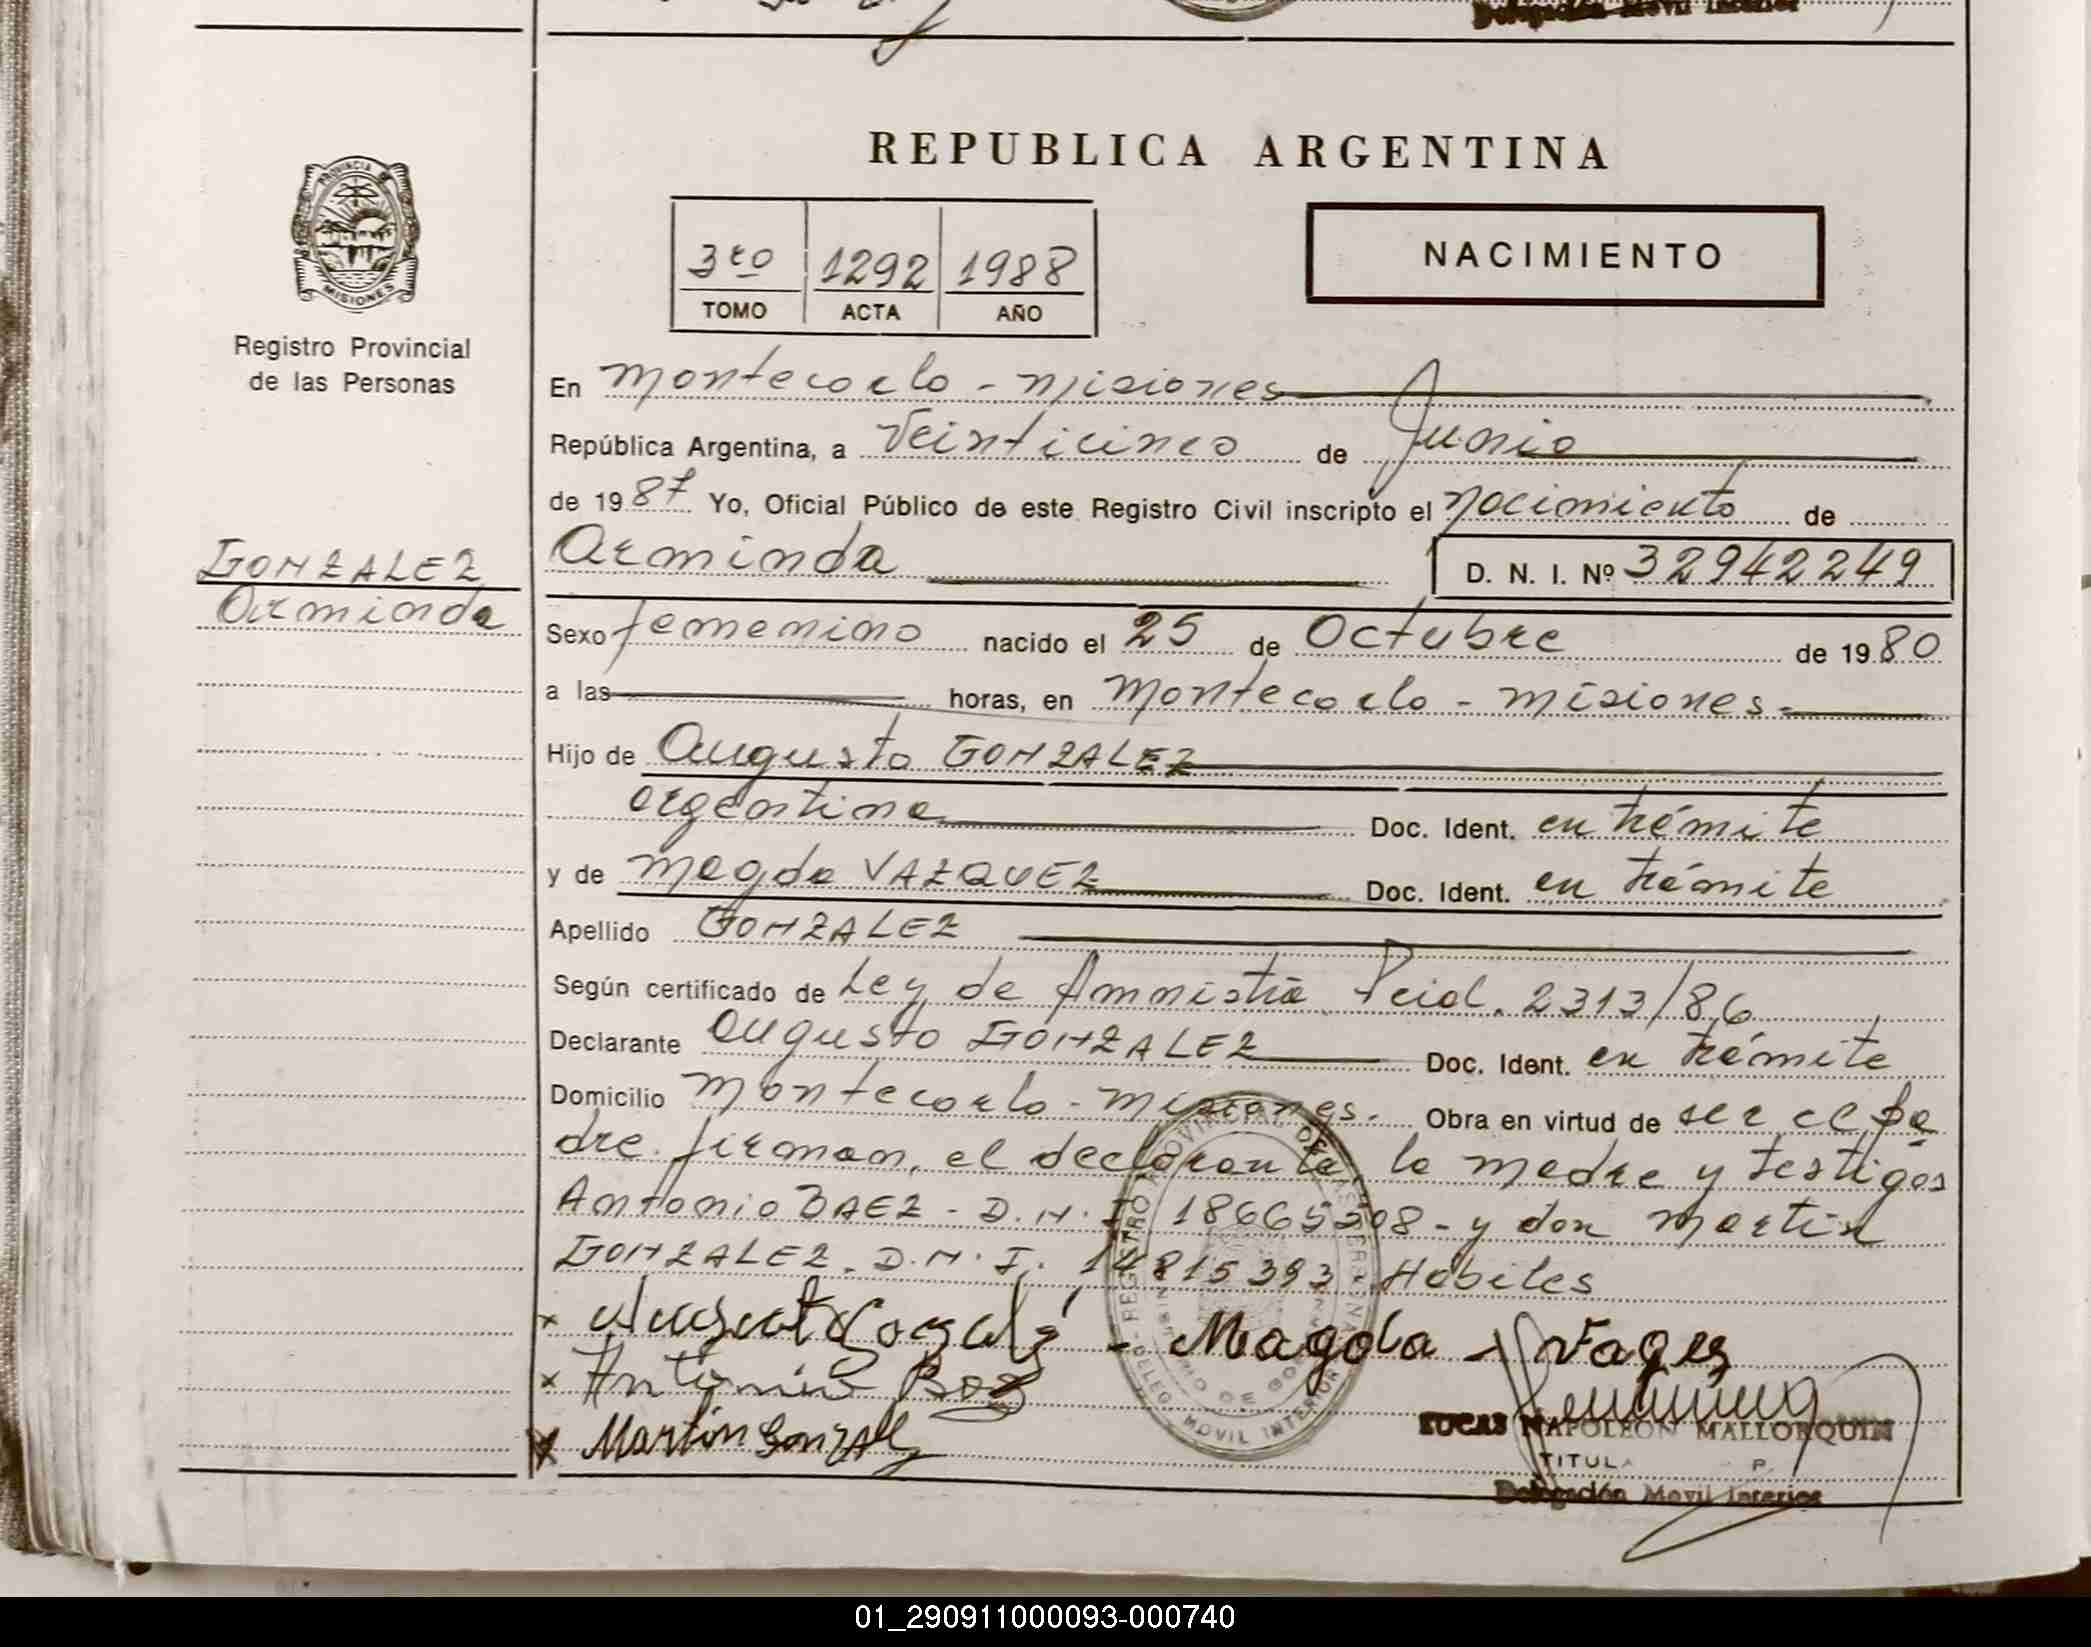 REPUBLICA ARGENTINA
PROVINCIA DE
MISIONES
Registro Provincial
de las Personas
3ro 1292 1988
TOMO ACTA AÑO
NACIMIENTO
En Montecarlo - Misiones
República Argentina, a Veinticinco de Junio
de 1987 Yo, Oficial Público de este Registro Civil inscripto el Nacimiento de
GONZALEZ
Arminda
Arminda D. N. I. Nº 32942249
Sexo femenino nacido el 25 de Octubre de 1980
a las horas, en Montecarlo - Misiones -
Hijo de Augusto GONZALEZ
argentina Doc. Ident. en trámite
y de Magda VAZQUEZ Doc. Ident. en trámite
Apellido GONZALEZ
Según certificado de Ley de Amnistia Pcial. 2313/86
Declarante Augusto GONZALEZ Doc. Ident. en trámite
Domicilio Montecarlo - Misiones. Obra en virtud de ser el pa
dre. firman, el declarante, la madre y testigos
Antonio BAEZ - D.N.I. 18665508 - y don Martin
GONZALEZ. D.N.I. 14815393. Habiles
Magda
Martin Gonzalez
LUCAS NAPOLEON MALLORQUIN
TITULAR
Delegación Movil Interior
01_290911000093-000740